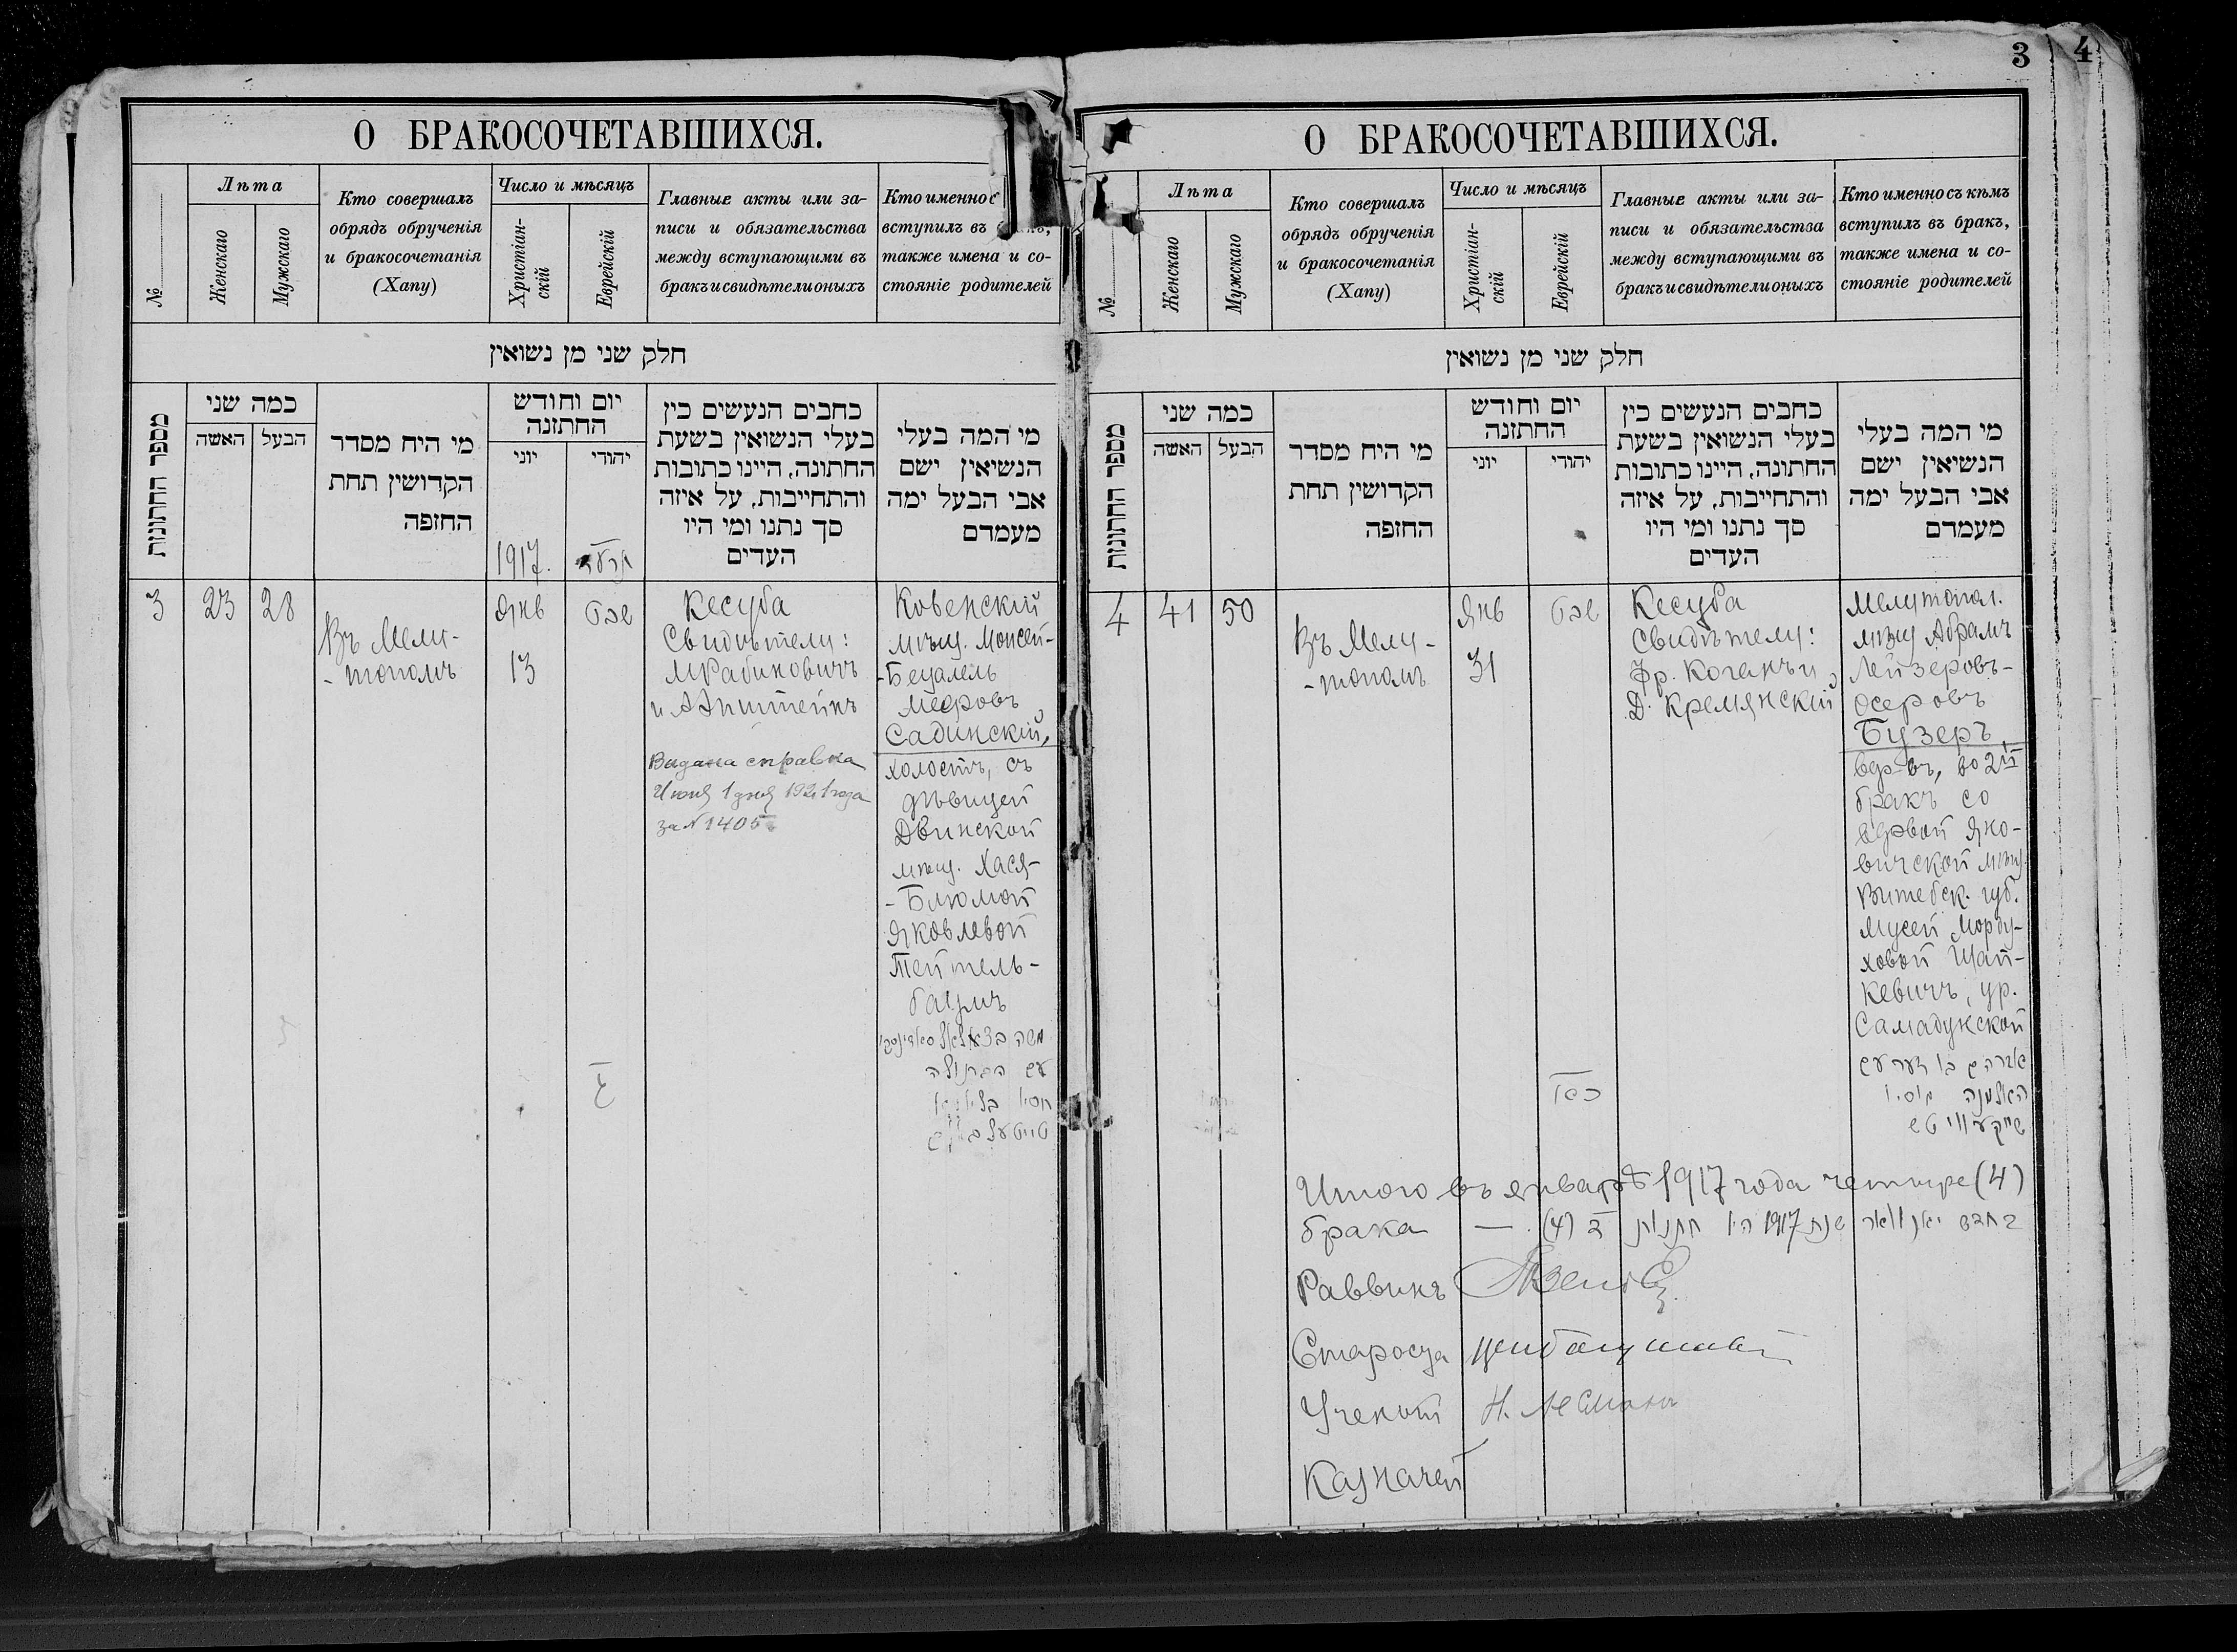 О БРАКОСОЧЕТАВШИХСЯ.
№
Лѣта
Женскаго
Мужскаго
Кто совершалъ
обрядъ обрученія
и бракосочетанія
(Хапу)
Число и мѣсяцъ
Христіан-
скій
Еврейскій
Главные акты или за-
писи и обязательства
между вступающими въ
бракъ и свидѣтели оныхъ
Кто именно с
вступилъ въ
также имена и со-
стояніе родителей
חלק שני מן נשואין
מספר החתונות
כמה שני
האשה
הבעל
מי היח מסדר
הקדושין תחת
החופה
יום וחודש
החתונה
יוני
יהודי
1917.
כחבים הנעשים כין
בעלי הנשואין בשעת
החתונה, היינו כתובות
והתחייבות, על איזה
סך נתנו ומי היו
העדים
מי המה בעלי
הנשיאין ישם
אבי הבעל ימה
מעמדם
3
23
28
Въ Мели-
-тополѣ
Янв
13
שבט
Кесуба
Свидѣтели:
М Рабиновичъ
и А Эпштейнъ
Видана справка
Июня 1 дня 1921 года
за № 1405
Ковенскій
мѣщ. Моисей-
-Бецалель
Меэровъ
Садинскій,
холостъ, съ
дѣвицей
Двинской
мѣщ. Хася-
-Блюмой
Яковлевой
Тейтель-
баумъ
עם הבתולה
О БРАКОСОЧЕТАВШИХСЯ.
3
4
№
Лѣта
Женскаго
Мужскаго
Кто совершалъ
обрядъ обрученія
и бракосочетанія
(Хапу)
Число и мѣсяцъ
Христіан-
скій
Еврейскій
Главные акты или за-
писи и обязательства
между вступающими въ
бракъ и свидѣтели оныхъ
Кто именно съ кѣмъ
вступилъ въ бракъ,
также имена и со-
стояніе родителей
חלק שני מן נשואין
מספר החתונות
כמה שני
האשה
הבעל
מי היח מסדר
הקדושין תחת
החופה
יום וחודש
החתונה
יוני
יהודי
כחבים הנעשים כין
בעלי הנשואין בשעת
החתונה, היינו כתובות
והתחייבות, על איזה
סך נתנו ומי היו
העדים
מי המה בעלי
הנשיאין ישם
אבי הבעל ימה
מעמדם
4
41
50
Въ Мели-
-тополѣ
Янв
31
שבט
Кесуба
Свидѣтели:
Фр. Коганъ и
Д. Кремянскій
Мелитопол.
мѣщ Абрамъ
Лейзеровъ-
Осеровъ
Бузеръ,
вд-въ, во 2й
бракъ со
вдовой Яно-
вичской мѣщ.
Витебск. губ.
Мусей Морду-
ховой Шай-
кевичъ, ур.
Самадунской
האלמנה
Итого въ январѣ 1917 года четыре (4)
брака
בחדש יאנוואר שנת 1917 היו חתנות ד (4)
Раввинъ
Староста
Ученый
Казначей